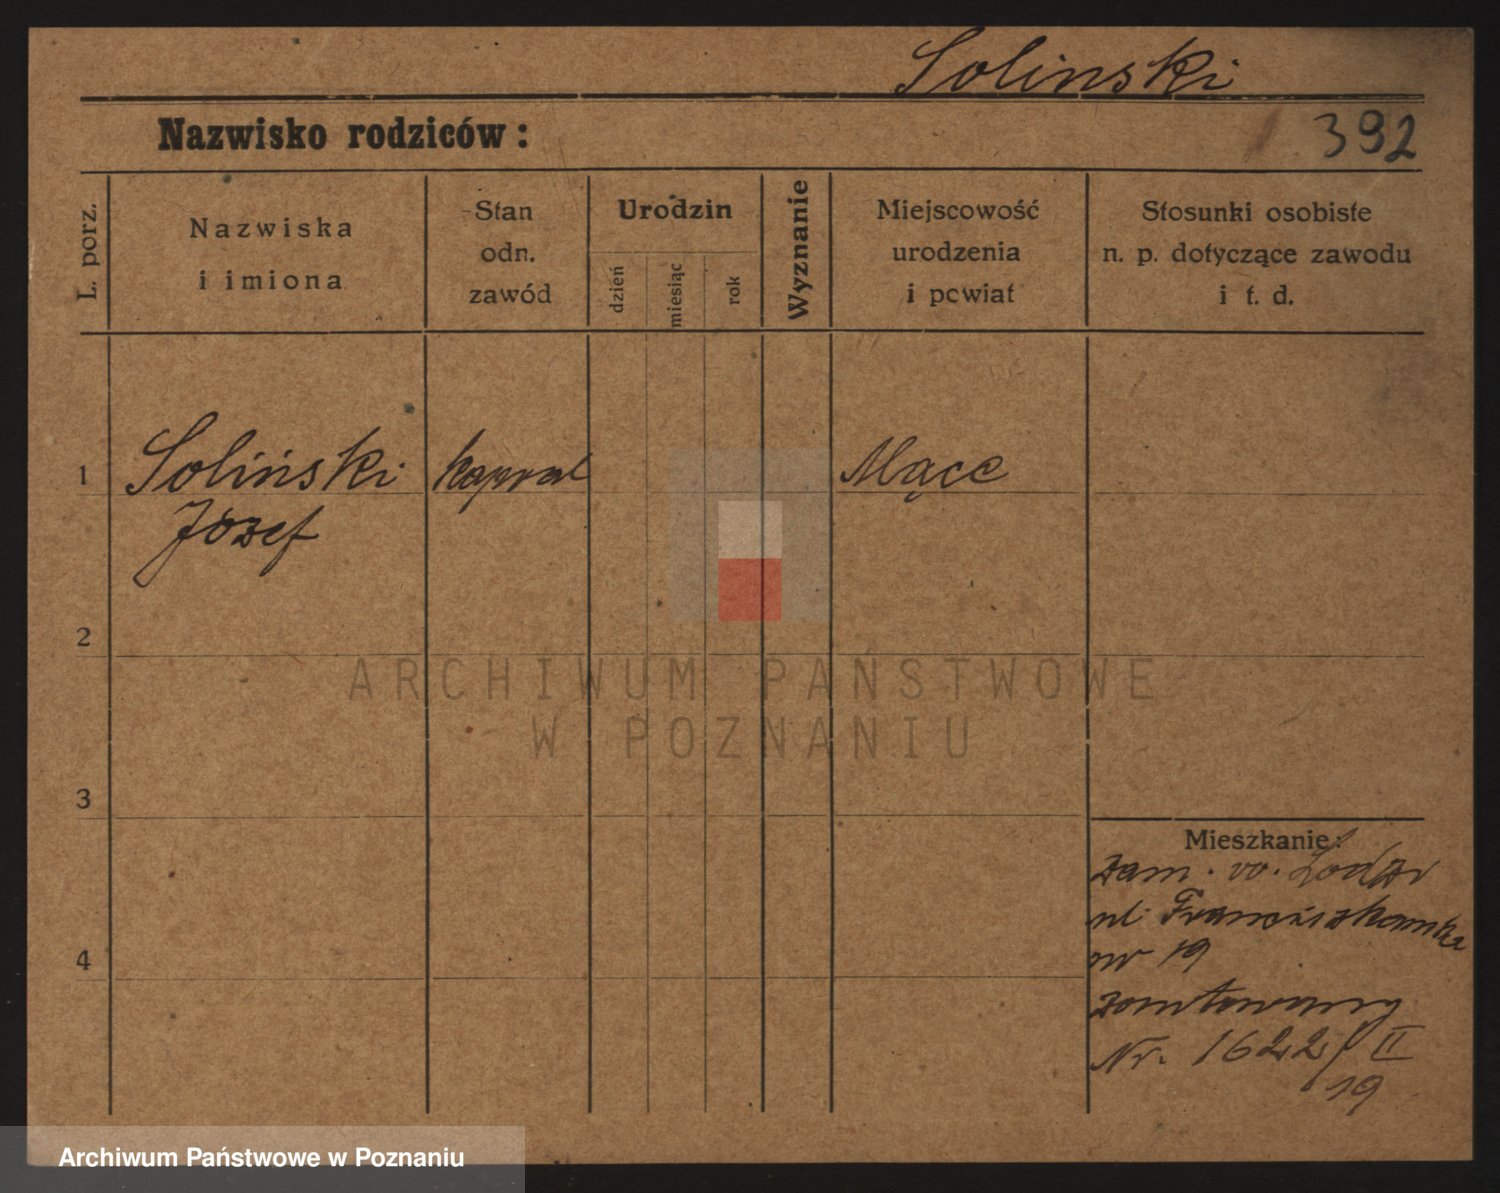 Solinski
Nazwisko rodziców:
392
L. porz.
Nazwiska
i imiona
Stan
odn.
zawód
Urodzin
dzień
miesiąc
rok
Wyznanie
Miejscowość
urodzenia
i powiat
Stosunki osobiste
n. p. dotyczące zawodu
i t. d.
1
Soliński
Józef
kapral
2
3
4
Mieszkanie:
zam. w. Łodzi
ul. Franciszkańska
nr 19
Nr. 1622/II
19
ARCHIWUM PAŃSTWOWE
W POZNANIU
Archiwum Państwowe w Poznaniu